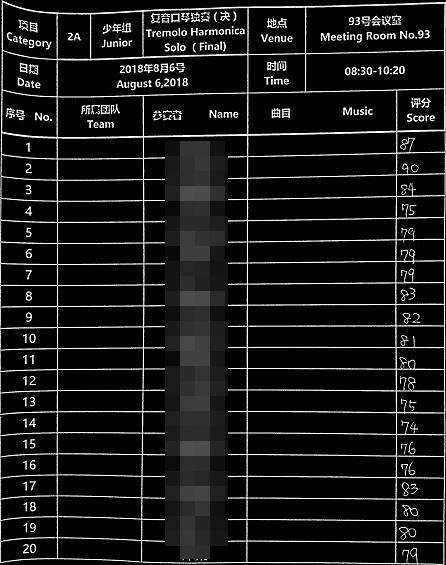 项目 Category 2A 少年组 Junior 复音口琴独奏（决） Tremolo Harmonica Solo（Final） 地点 Venue 93号会议室 Meeting Room No.93
日期 Date 2018年8月6号 August 6,2018 时间 Time 08:30-10:20
序号 No. 所属团队 Team 参赛者 Name 曲目 Music 评分 Score
1 87
2 90
3 84
4 75
5 79
6 79
7 79
8 83
9 82
10 81
11 80
12 78
13 75
14 74
15 76
16 76
17 83
18 80
19 80
20 79